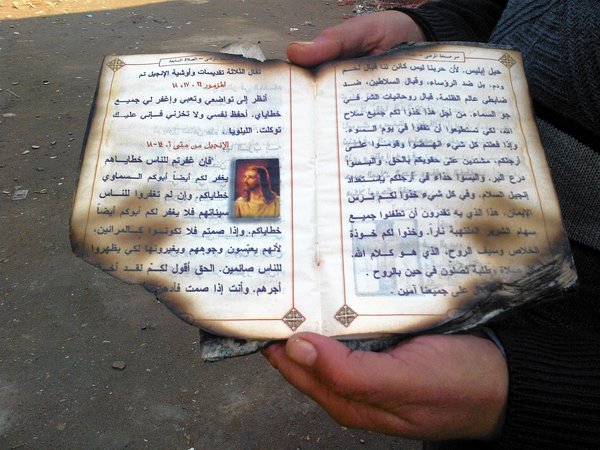 سر مسحة المرضى
حيل إبليس. لأن حربنا ليس كائن لنا قبال لحم
ودم، بل ضد الرؤساء، وقبال السلاطين، ضد
ضابطي عالم الظلمة. قبال روحانيات الشر في
جو السماء. من أجل هذا خذوا لكم جميع سلاح
الله. لكي تستطيعوا أن تقفوا في يوم السوء.
وإذا فعلتم كل شيء انهضوا وقوموا على
أرجلكم، مشتدين على حقويكم بالحق. والبسوا
درع البر. والبسوا حذاء في أرجلكم باستعداد
إنجيل السلام. وفي كل شيء خذوا لكم ترس
الإيمان. هذا الذي به تقدرون أن تطفئوا جميع
سهام الشرير الملتهبة ناراً. وخذوا لكم خوذة
الخلاص وسيف الروح، الذي هو كلام الله.
صلاة وطلبة تصلون في حين بالروح.
على جميعنا آمين.
المرضى - الصلاة
تقال الثلاثة تقديسات وأوشية الإنجيل ثم
المزمور ٢٤: ١٧، ١٨
أنظر إلى تواضعي وتعبي وإغفر لي جميع
خطاياي. أحفظ نفسي ولا تخزني فإني عليك
توكلت. الليلويا.
الإنجيل من متى ٦: ١٤-١٨
فإن غفرتم للناس خطاياهم
يغفر لكم أيضاً أبوكم السماوي
خطاياكم. وإن لم تغفروا للناس
سيئاتهم فلا يغفر لكم أبوكم أيضاً
خطاياكم. وإذا صمتم فلا تكونوا كالمرائين،
لأنهم يعبّسون وجوههم ويغيرونها لكي يظهروا
للناس صائمين. الحق أقول لكم لقد
أجرهم. وأنت إذا صمت